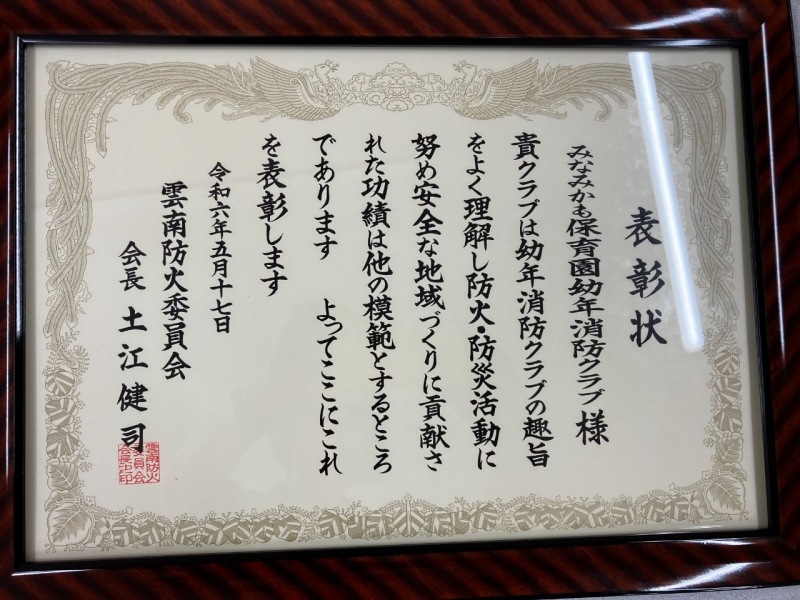 表彰状
みなみかも保育園幼年消防クラブ 様
貴クラブは幼年消防クラブの趣旨
をよく理解し防火・防災活動に
努め安全な地域づくりに貢献さ
れた功績は他の模範とするところ
であります よってここにこれ
を表彰します
令和六年五月十七日
雲南防火委員会
会長 土江健司
雲南防火
委員会
会長之印